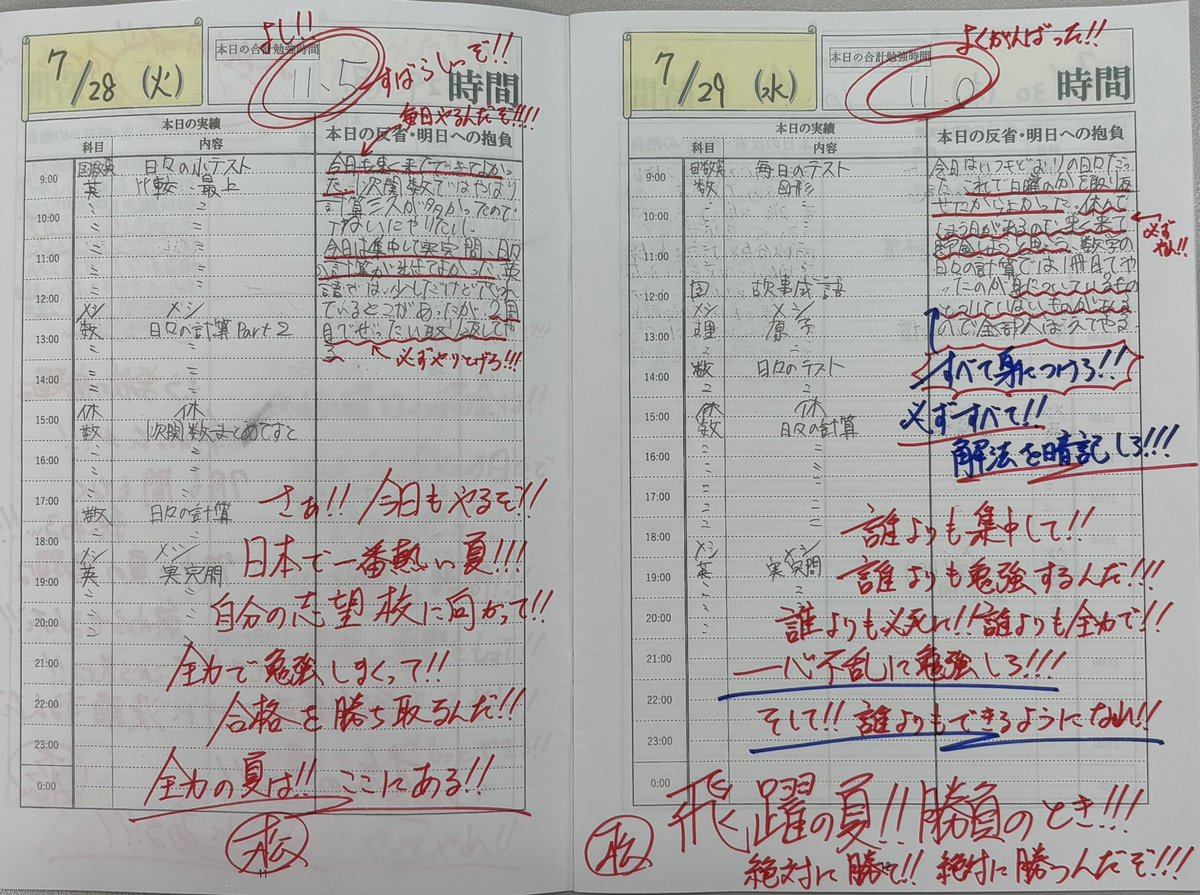 7/28 (火)
よし!!
本日の合計勉強時間
11.5
時間
すばらしいぞ!!
毎日やるんだぞ!!!!
本日の実績
本日の反省・明日への抱負
科目
内容
9:00
国数英 日々の小テスト
英 比較 最上
10:00
11:00
12:00
メシ メシ
数 日々の計算 Part 2
13:00
14:00
休 休
15:00
数 1次関数まとめてすと
16:00
17:00
数 日々の計算
18:00
メシ メシ
英 実宍間
19:00
20:00
21:00
22:00
23:00
0:00
た。1次関数ではやはり
計算ミスが多かったので
今日は集中して
必ずやりとげろ!!!
さぁ!! 今日もやるぞ!!
日本で一番熱い夏!!!
自分の志望校に向かって!!
全力で勉強しまくって!!
合格を勝ち取るんだ!!
全力の夏は!! ここにある!!
松
11
7/29 (水)
よくがんばった!!
本日の合計勉強時間
11.0
時間
本日の実績
本日の反省・明日への抱負
科目
内容
9:00
国数英 毎日のテスト
数 図形
10:00
11:00
12:00
国 故事成語
メシ メシ
理 原子
13:00
14:00
数 日々のテスト
休 休
15:00
数 日々の計算
16:00
17:00
18:00
メシ メシ
英 実宍間
19:00
20:00
21:00
22:00
23:00
0:00
今日はいつもどおりの日々だっ
た。これで日曜の分を取り返
せたからよかった。休んで
しまう日があるので
日々の計算では1冊目でや
ったのが身についているもの
とついていないものがある
ので全部
必ずやれ!!
すべて身につけろ!!
必ずすべて!!
解法を暗記しろ!!!
誰よりも集中して!!
誰よりも勉強するんだ!!!
誰よりも必死に!! 誰よりも全力で!!
一心不乱に勉強しろ!!!
そして!! 誰よりもできるようになれ!!
飛躍の夏!! 勝負のとき!!!
松
絶対に勝て!! 絶対に勝つんだぞ!!!